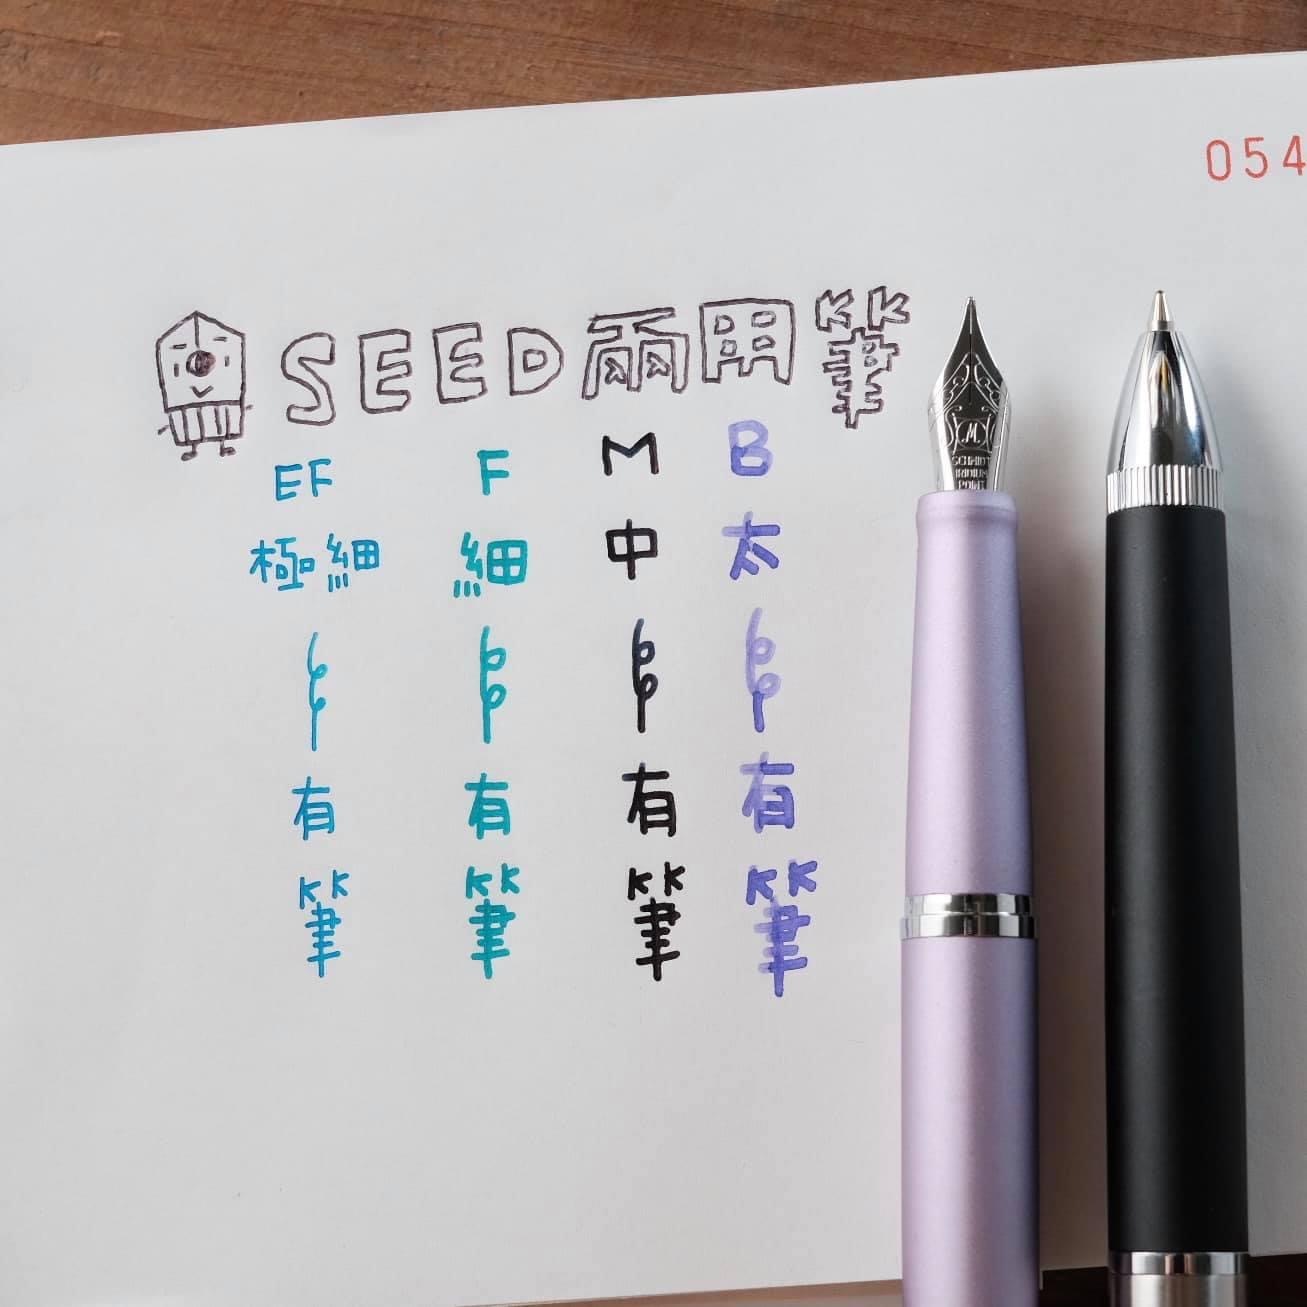 054
SEED兩用筆
EF F M B
極細 細 中 太
有 有 有 有
筆 筆 筆 筆
M
SCHMIDT
IRIDIUM
POINT